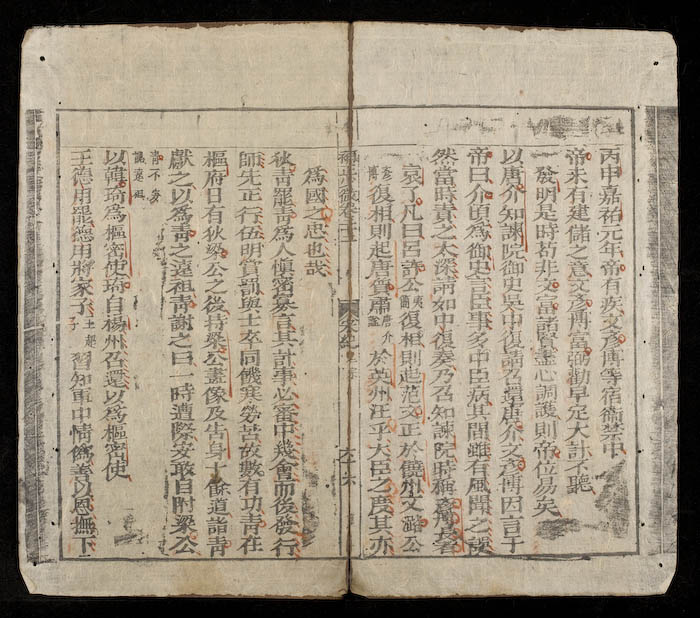 丙申嘉祐元年帝有疾文彥博等宿衞禁中
帝未有建儲之意文彥博富弼勸早定大計不聽
發明是時苟非文富諸賢盡心調護則帝位易矣
以唐介知諫院御史吳中復請召還唐介文彥博因言于
帝曰介頃爲御史言臣事多中臣病其間雖有風聞之誤
然當時責之太深請如中復奏乃召知諫院時稱彥博長者
袁了凡曰呂許公夷簡復相則起范文正於饒州文潞公
彥博復相則起唐舊肅唐介諡於英州汪乎大臣之度其亦
爲國之忠也哉
狄靑罷靑爲人愼密寡言其計事必審中幾會而後發行
師先正行伍明賞罰與士卒同饑寒勞苦故數有功靑在
樞府日有狄梁公之後持梁公畫像及告身十餘道詣靑
獻之以爲靑之遠祖靑謝之曰一時遭際安敢自附梁公
靑不妄認遠祖
以韓琦爲樞密使琦自楊州召還以爲樞密使
王德用罷德用將家子王超子習知軍中情僞善以恩撫下